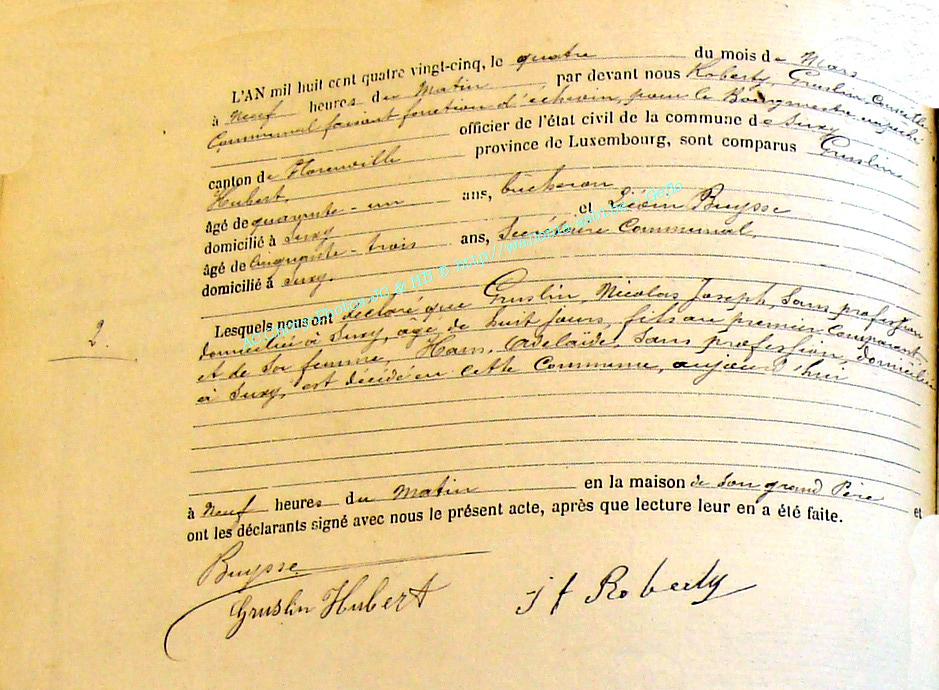 L'AN mil huit cent quatre vingt-cinq, le quatre du mois de Mars
à Neuf heures du Matin par devant nous Roberty, Gruslin, Conseiller
Communal faisant fonction d'échevin, pour le Bourgmestre empêché
officier de l'état civil de la commune de Suxy
canton de Florenville province de Luxembourg, sont comparus Gruslin
Hubert,
âgé de quarante-un ans, bûcheron
domicilié à Suxy et Liévin Buysse
âgé de Cinquante-trois ans, Secrétaire Communal,
domicilié à Suxy.
Lesquels nous ont déclaré que Gruslin, Nicolas Joseph, Sans profession
domicilié à Suxy, âgé de huit jours, fils au premier Comparant
et de Sa femme, Hans, Adelaïde, Sans profession, domiciliée
à Suxy, est décédé en cette Commune, aujourd'hui
2.
à Neuf heures du Matin en la maison de Son grand Père et
ont les déclarants signé avec nous le présent acte, après que lecture leur en a été faite.
Buysse
Gruslin Hubert
J f Roberty